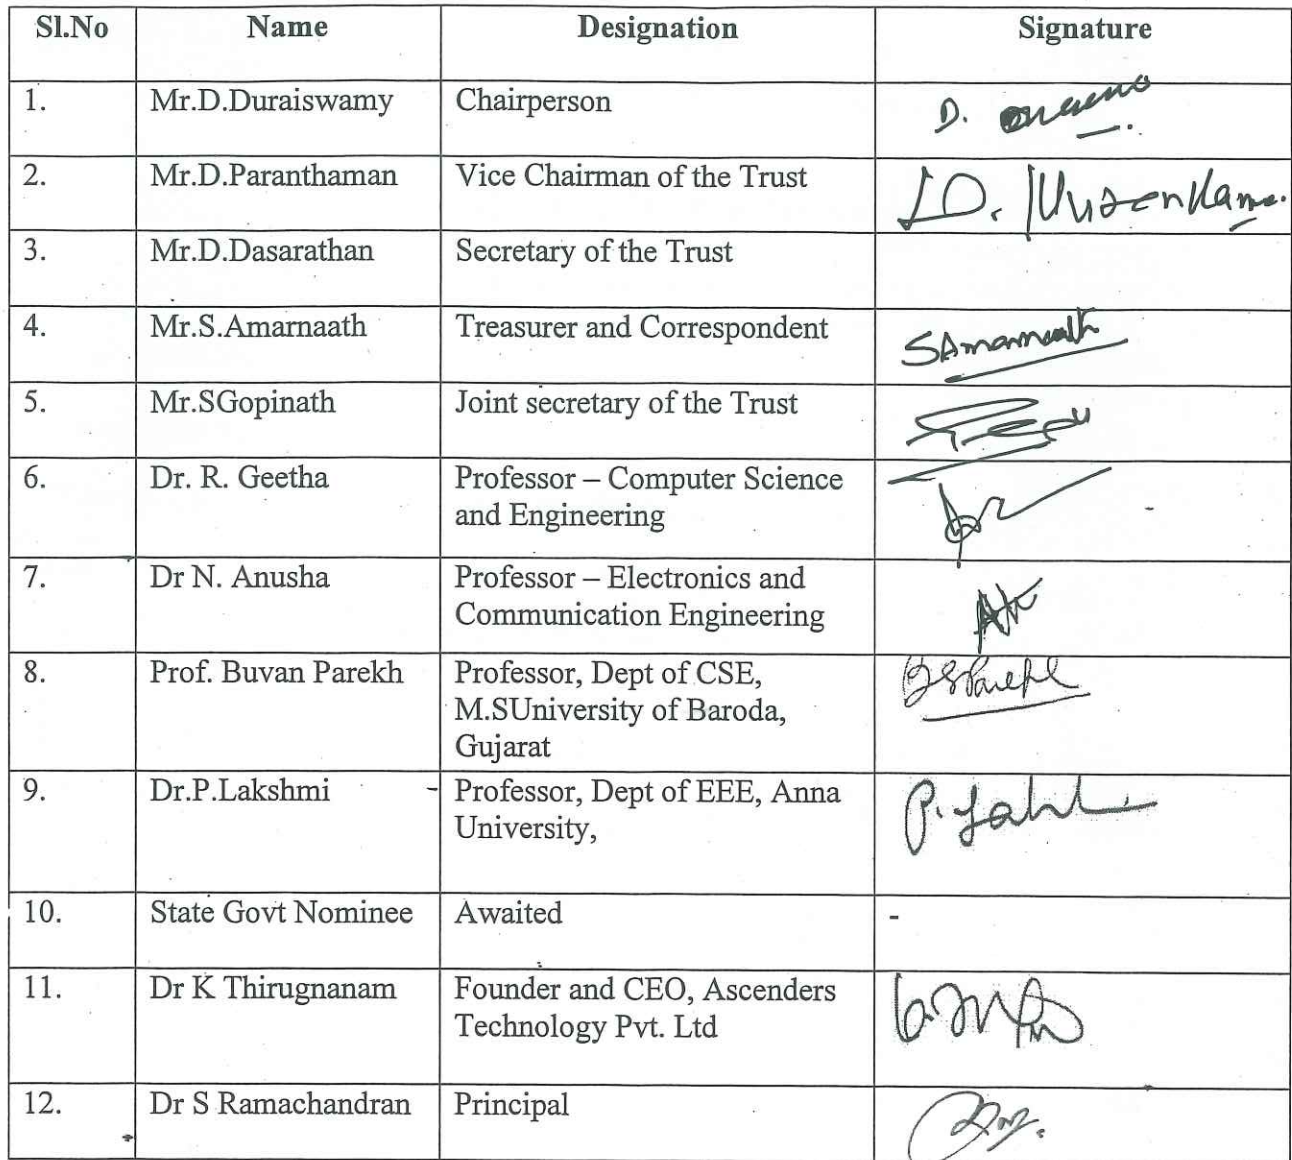 Sl.No Name Designation Signature
1. Mr.D.Duraiswamy Chairperson D.
2. Mr.D.Paranthaman Vice Chairman of the Trust D.
3. Mr.D.Dasarathan Secretary of the Trust
4. Mr.S.Amarnaath Treasurer and Correspondent SAmarnaath
5. Mr.SGopinath Joint secretary of the Trust
6. Dr. R. Geetha Professor – Computer Science
and Engineering
7. Dr N. Anusha Professor – Electronics and
Communication Engineering
8. Prof. Buvan Parekh Professor, Dept of CSE,
M.SUniversity of Baroda,
Gujarat
9. Dr.P.Lakshmi - Professor, Dept of EEE, Anna
University,
10. State Govt Nominee Awaited -
11. Dr K Thirugnanam Founder and CEO, Ascenders
Technology Pvt. Ltd
12. Dr S Ramachandran Principal